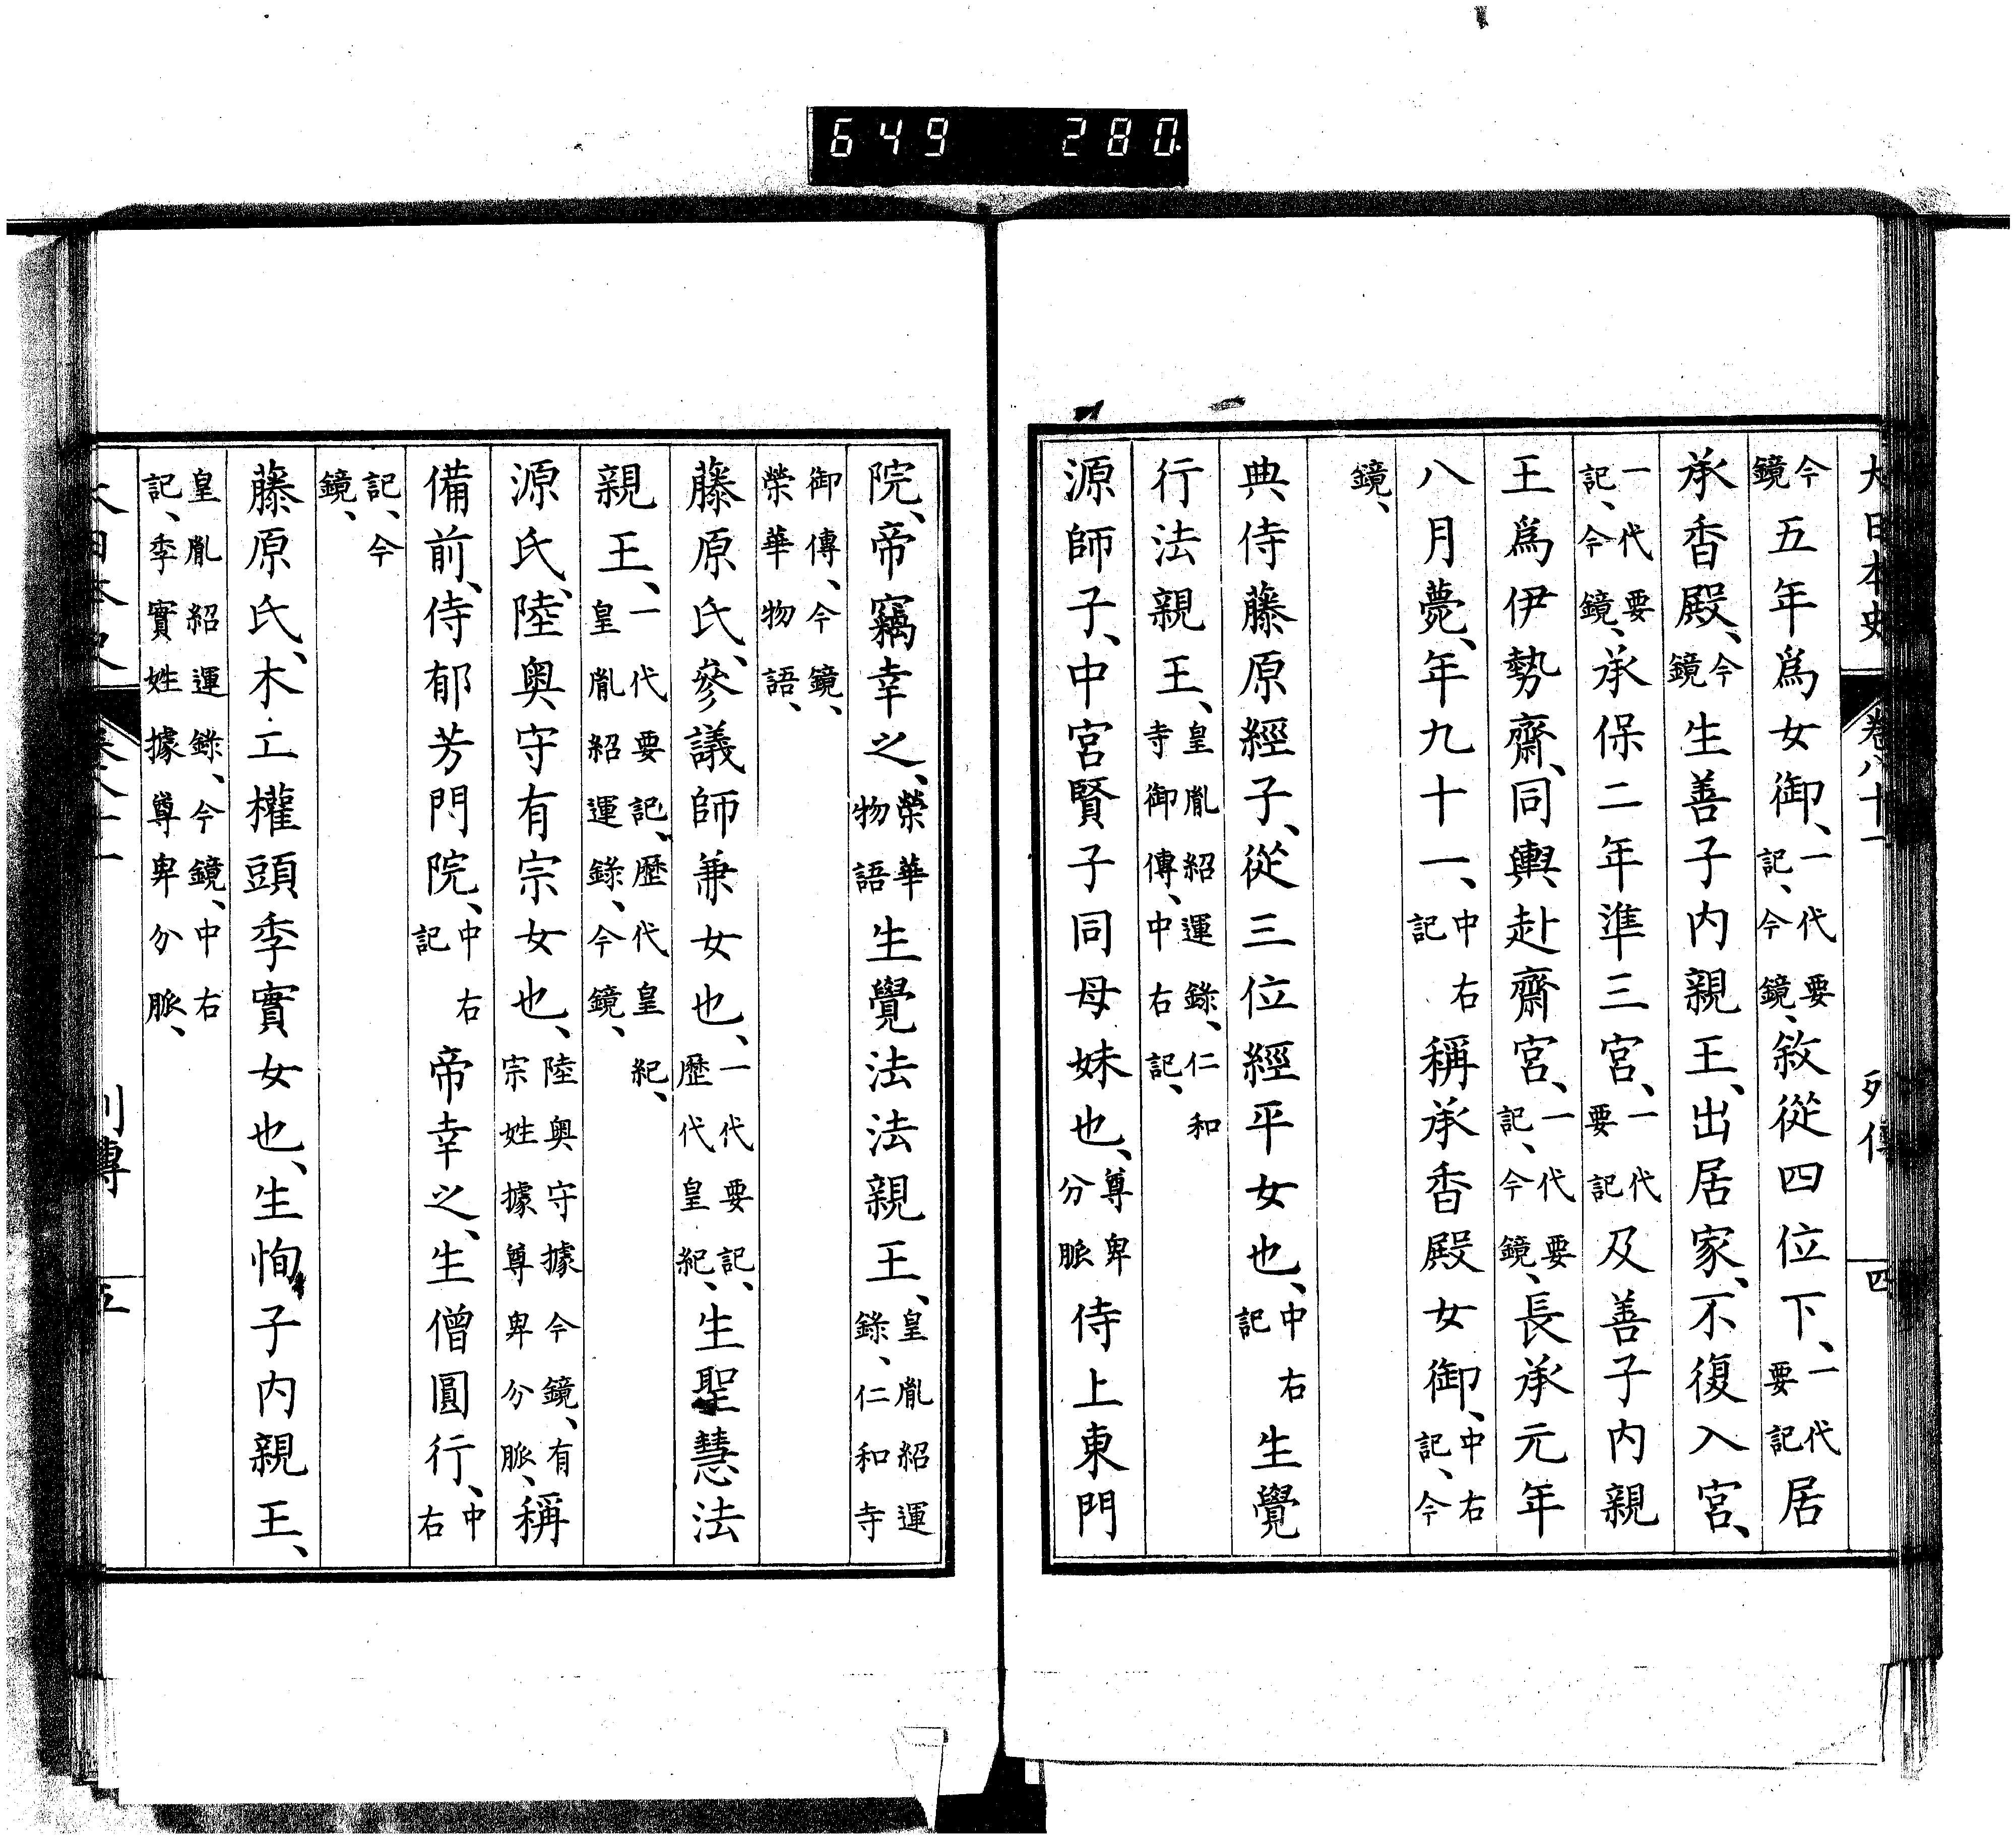 649 280
大日本史 卷八十一 列傳 四
今鏡五年爲女御、一代要記、今鏡、敘從四位下、一代要記居
承香殿、今鏡生善子内親王、出居家、不復入宮、
一代要記、今鏡、承保二年準三宮、一代要記及善子内親
王爲伊勢齋、同輿赴齋宮、一代要記、今鏡、長承元年
八月薨、年九十一、中右記稱承香殿女御、中右記、今
鏡、
典侍藤原經子、從三位經平女也、中右記生覺
行法親王、皇胤紹運錄、仁和寺御傳、中右記、
源師子、中宮賢子同母妹也、尊卑分脈侍上東門
院、帝竊幸之、榮華物語生覺法法親王、皇胤紹運錄、仁和寺
御傳、今鏡、榮華物語、
藤原氏、參議師兼女也、一代要記、歷代皇紀、生聖慧法
親王、一代要記、歷代皇紀、皇胤紹運錄、今鏡、
源氏、陸奥守有宗女也、陸奥守據今鏡、有宗姓據尊卑分脈、稱
備前、侍郁芳門院、中右記帝幸之、生僧圓行、中右
記、今鏡、
藤原氏、木工權頭季實女也、生恂子内親王、
皇胤紹運錄、今鏡、中右記、季實姓據尊卑分脈、
大日本史 卷八十一 列傳 五